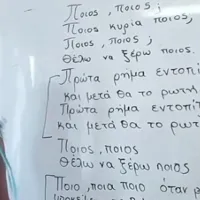 Ποιος, ποιος;
Ποιος κυρία ποιος,
Ποιος, ποιος;
Θέλω να ξέρω ποιος.
Πρώτα ρήμα εντοπί
και μετά θα το ρωτή
Πρώτα ρήμα εντοπί
και μετά θα το ρωτή
Ποιος, ποιος
Θέλω να ξέρω ποιος
Ποιο, ποια ποιο όταν ρ